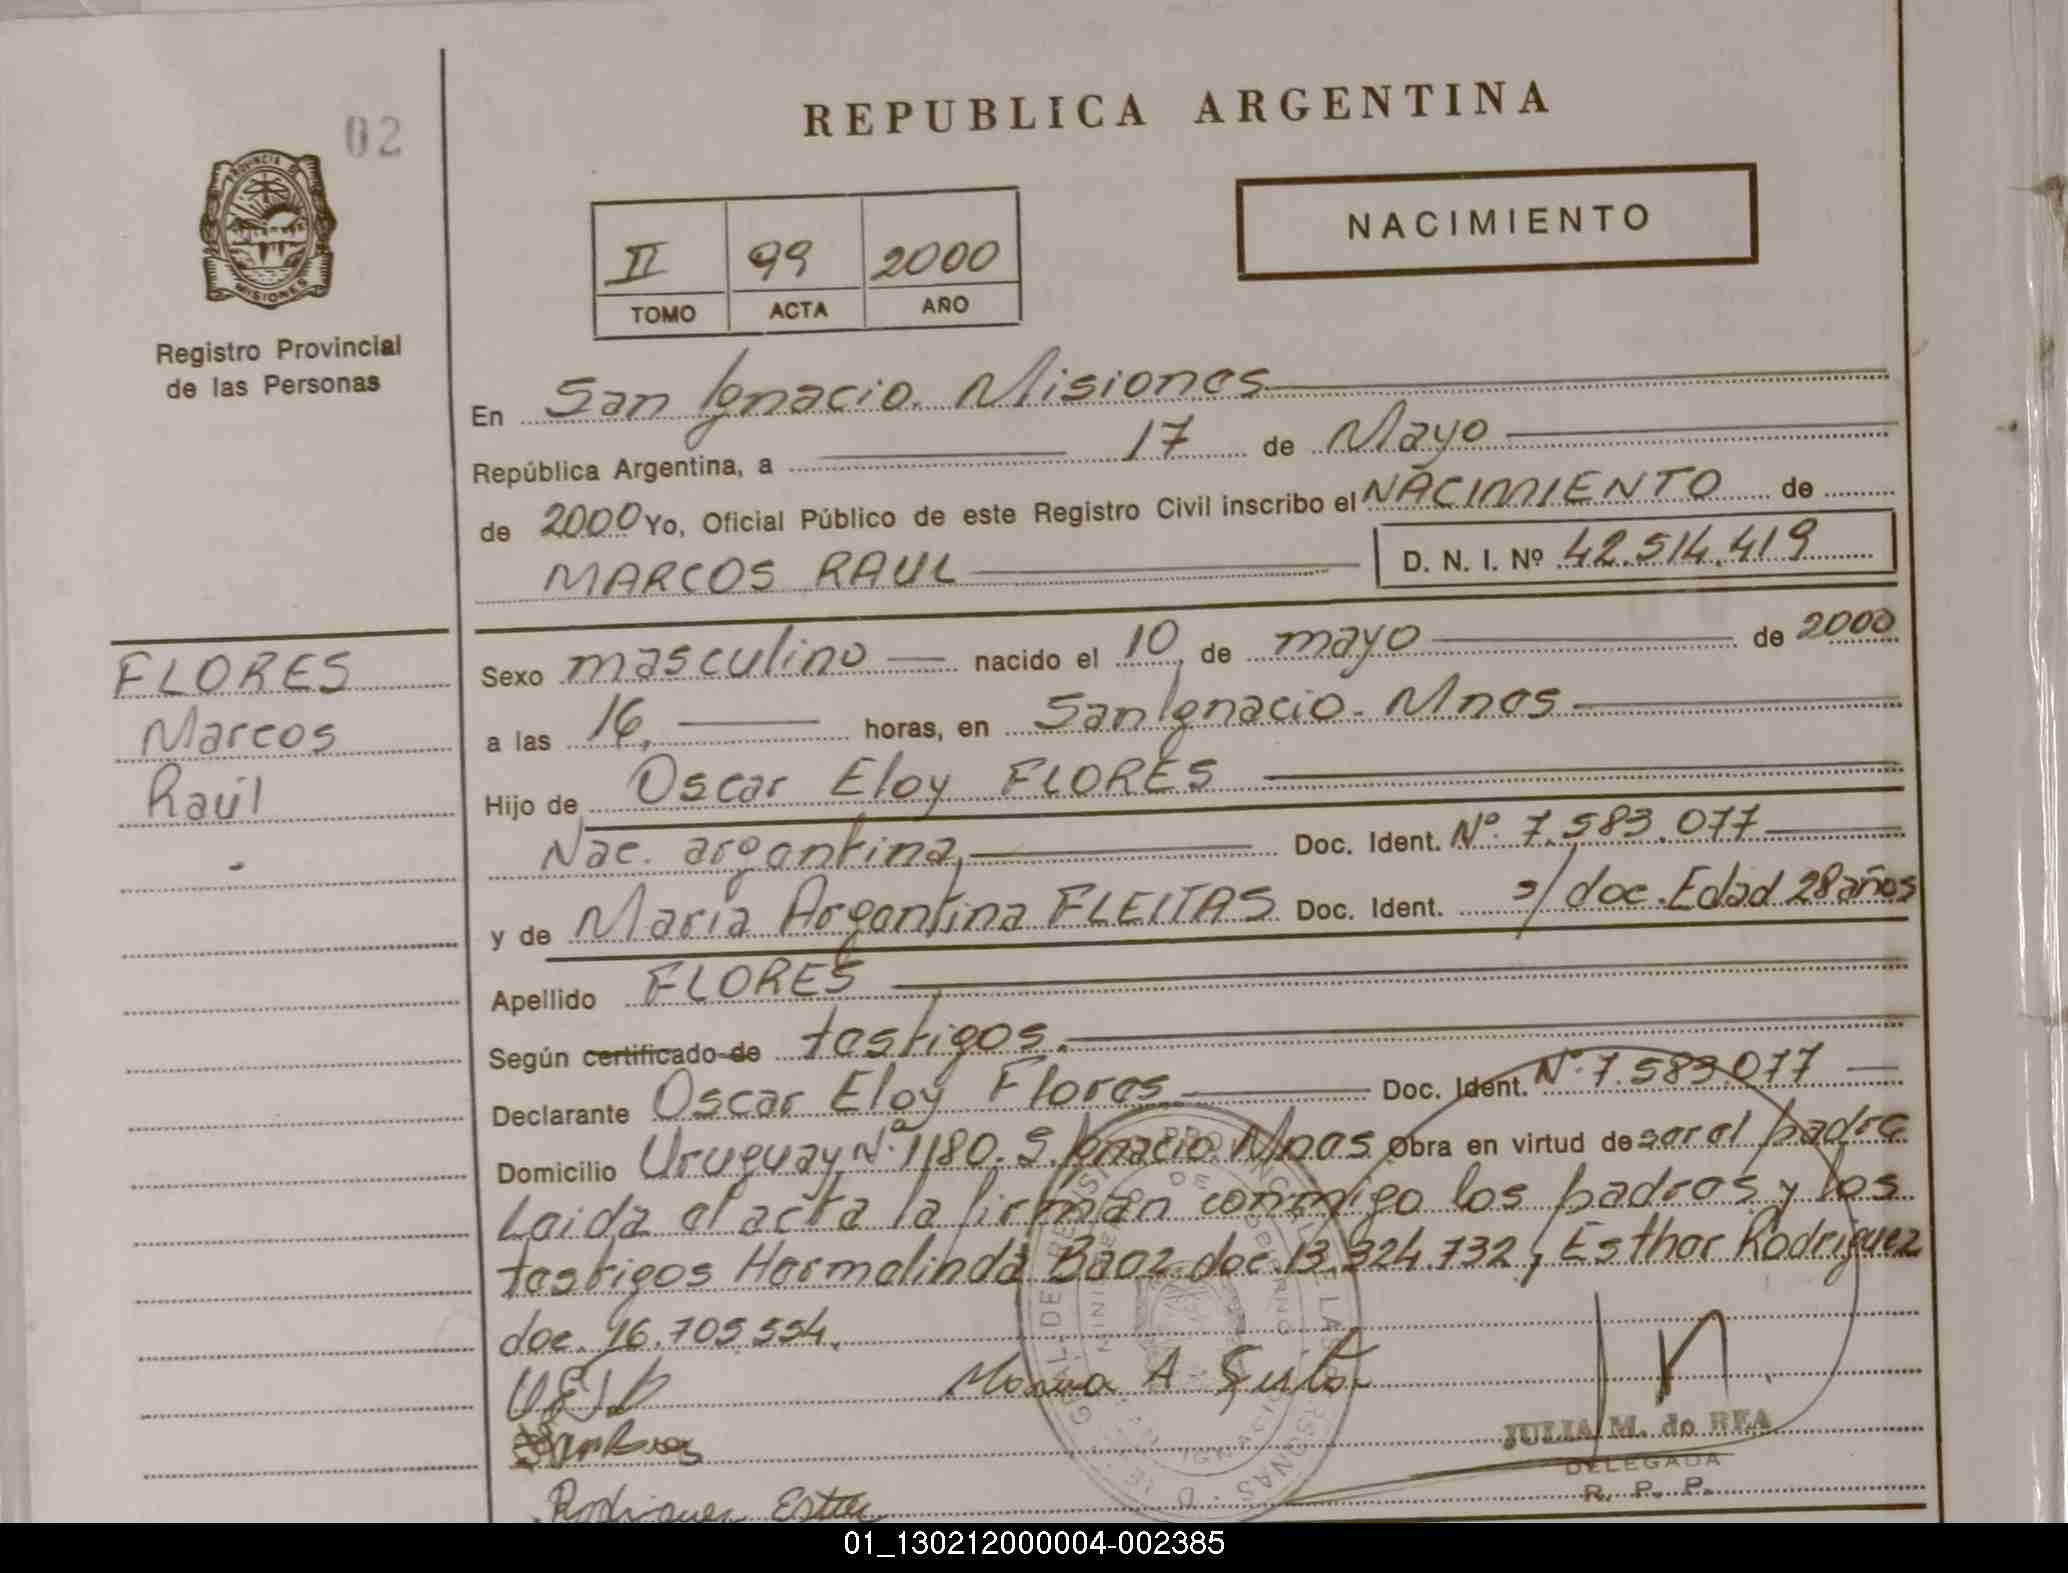 02
REPUBLICA ARGENTINA
PROVINCIA DE
MISIONES
NACIMIENTO
II 99 2000
TOMO ACTA AÑO
Registro Provincial
de las Personas
En San Ignacio. Misiones
República Argentina, a 17 de Mayo
de 2000 Yo, Oficial Público de este Registro Civil inscribo el NACIMIENTO de
MARCOS RAUL D. N. I. Nº 42.514.419
FLORES
Marcos
Raúl
Sexo masculino nacido el 10 de mayo de 2000
a las 16, horas, en San Ignacio - Mnes
Hijo de Oscar Eloy FLORES
Nac. argentina, Doc. Ident. Nº 7.583.077
y de María Argentina FLEITAS Doc. Ident. s/doc. Edad 28 años
Apellido FLORES
Según certificado de testigos.
Declarante Oscar Eloy Flores Doc. Ident. Nº 7.583.077
Domicilio Uruguay Nº 1180. S. Ignacio Mnes Obra en virtud de ser el padre
Leida el acta la firman conmigo los padres y los
testigos Hermelinda Baez doc. 13.324.732, Esther Rodriguez
doc. 16.705.554.
JULIA M. de REA
DELEGADA
R. P. P.
Rodriguez Ester
01_130212000004-002385